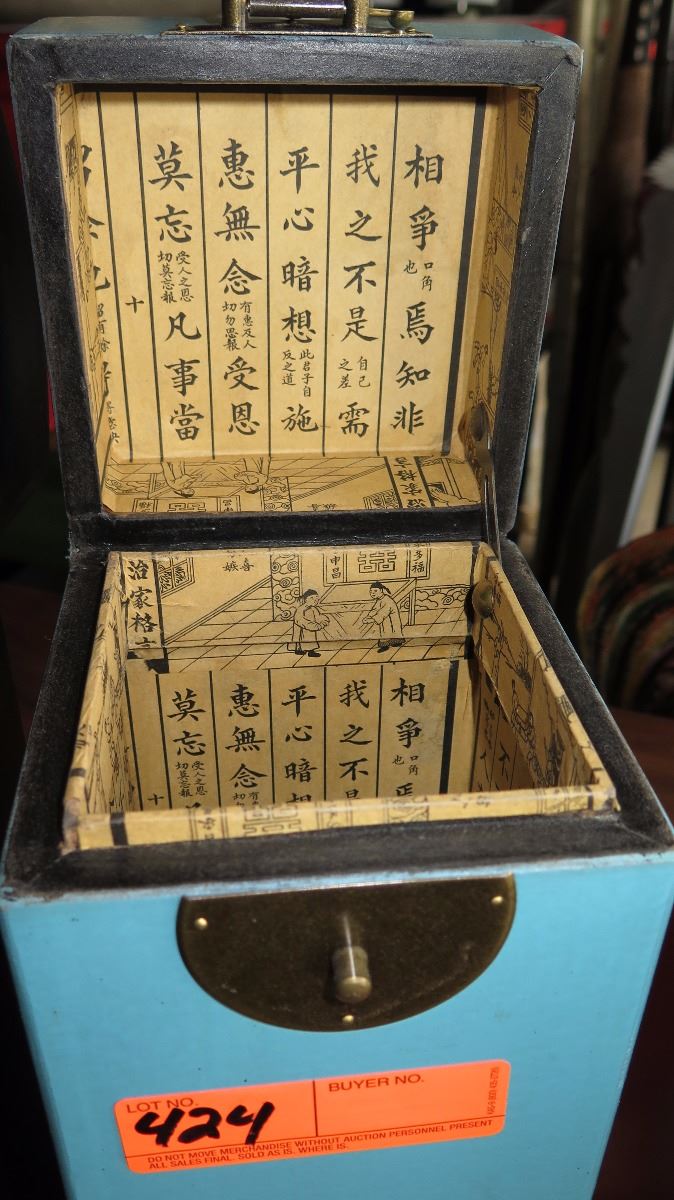 相爭口角也焉知非
我之不是自己之差需
平心暗想此君子自反之道施
惠無念有惠及人切勿思報受恩
莫忘受人之恩切莫忘報凡事當
十
治家格言
多福
申昌
治家格言
相爭口角也焉
我之不是
平心暗想
惠無念
莫忘受人之恩切莫忘報
十
LOT NO.
424
BUYER NO.
DO NOT MOVE MERCHANDISE WITHOUT AUCTION PERSONNEL PRESENT
ALL SALES FINAL. SOLD AS IS. WHERE IS.